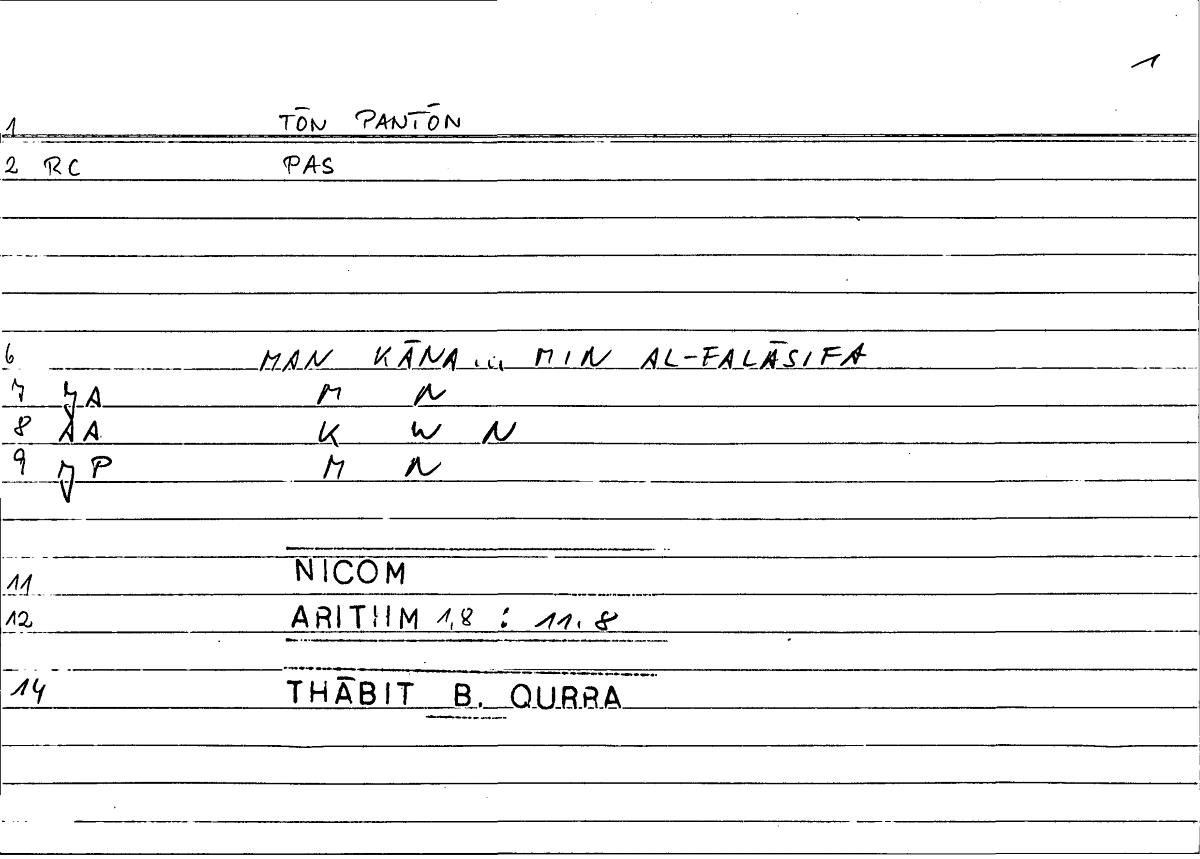 1
1 TŌN PANTŌN
2 RC PAS
6 MAN KĀNA... MIN AL-FALĀSIFA
7 JA M N
8 AA K W N
9 JP M N
11 NICOM
12 ARITHM 1,8 : 11.8
14 THĀBIT B. QURRA